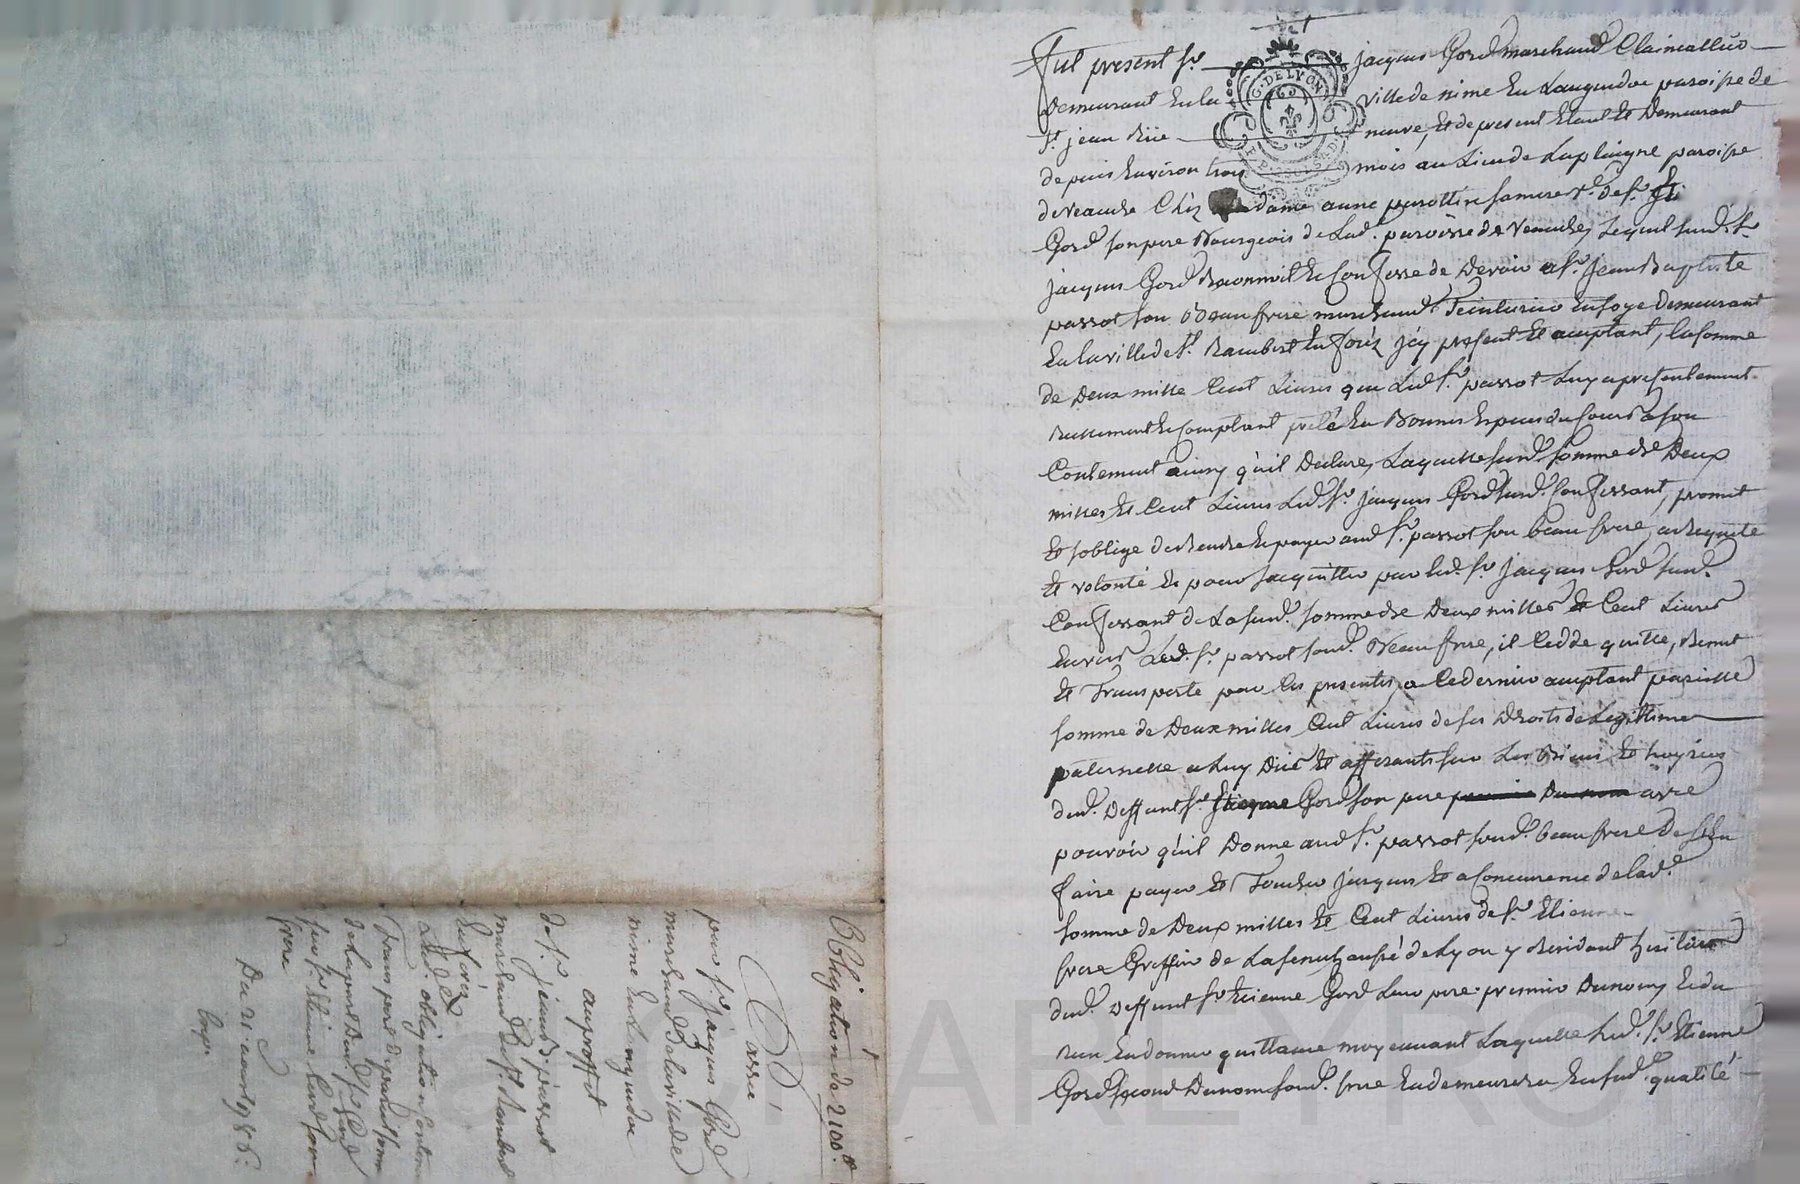 Fut present Sr. jacques Gord marchand Clincallier
Demeurant En la ville de nime En Languedoc paroisse de
St. jean Rüe neuve, Et de present Etant Et Demeurant
depuis Environ trois mois au Lieu de Laplaigne paroisse
de Veauche Chéz dame anne
Gord son pere Bourgeois de Lad. paroisse de Veauche, Lequel susd. Sr.
jacques Gord Reconnoit Et Confesse de Devoir a Sr. Jean Baptiste
passot son Beaufrere marchand Teinturier En soye Demeurant
En la ville de St. Rambert En foréz jcy present Et aceptant, la somme
de Deux mille Cent Livres que Led. Sr. passot Luy a presentement
Reellement Et Comptant preté En Bonnes Especes du Cours a son
Contentement ainsy qu'il Declare, Laquelle susd. somme de Deux
milles Et Cent Livres Led. Sr. jacques Gord susd. Confessant, promet
Et soblige de Rendre Et payer aud. Sr. passot son beau frere, a Requete
Et volonté Et pour sacquitter par led. Sr. jacques Gord susd.
Confessant de La susd. somme de Deux milles Et Cent Livres
Envers Led. Sr. passot sond. Beaufrere, il Cedde quitte, Remet
Et Transporte par les presentes a Ce dernier aceptant pareille
somme de Deux milles Cent Livres de ses Droits de Legittime
paternelle a Luy Düe Et afferants sur Les Biens Et hoyries
dud. Deffunt Sr. Etienne Gord son pere avec
pouvoir qu'il Donne aud. Sr. passot sond. beaufrere De s'En
faire payer Et Toucher jusques Et a Concurrence de lad.
somme de Deux milles Et Cent Livres de Sr. Etienne
frere Greffier de La senechaussé de Lyon y Residant heritier
dud. Deffunt Sr. Etienne Gord Leur pere premier Du nom, Et du
Rien En donner quittance moyennant Laquelle Led. Sr. Etienne
Gord second Du nom sond. frere En demeurera En sad. qualité
G. DE LYON
Obligation de 2100 ll
Passée
par Sr. jacques Gord
marchand de la ville de
nime En Languedoc
au proffit
de Sr. jean B. passot
marchand de St. Rambert
En foréz
Lad. obligation Conten
Transport de pareille somme
sur Sr. Etienne Gord son
frere
Du 21 aout 1786.
Copie
CHAREYRON